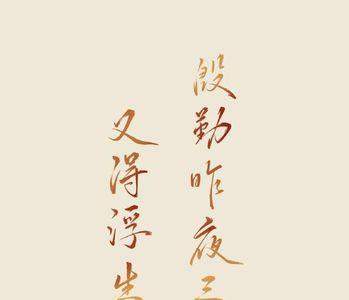 殷勤昨夜三
又得浮生